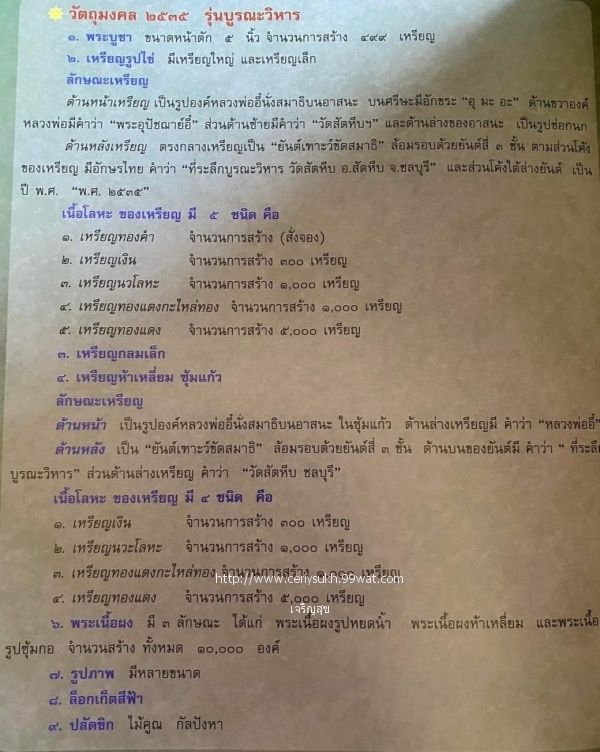 วัตถุมงคล ๒๕๓๕ รุ่นบูรณะวิหาร
๑. พระบูชา ขนาดหน้าตัก ๕ นิ้ว จำนวนการสร้าง ๔๙๙ เหรียญ
๒. เหรียญรูปไข่ มีเหรียญใหญ่ และเหรียญเล็ก
ลักษณะเหรียญ
ด้านหน้าเหรียญ เป็นรูปองค์หลวงพ่ออี๋นั่งสมาธิบนอาสนะ บนศรีษะมีอักขระ "อุ มะ อะ" ด้านขวาองค์
หลวงพ่อมีคำว่า "พระอุปัชฌาย์อี๋" ส่วนด้านซ้ายมีคำว่า "วัดสัตหีบฯ" และด้านล่างของอาสนะ เป็นรูปช่อกนก
ด้านหลังเหรียญ ตรงกลางเหรียญเป็น "ยันต์เฑาะว์ขัดสมาธิ" ล้อมรอบด้วยยันต์สี่ ๓ ชั้น ตามส่วนโค้ง
ของเหรียญ มีอักษรไทย คำว่า "ที่ระลึกบูรณะวิหาร วัดสัตหีบ อ.สัตหีบ จ.ชลบุรี" และส่วนโค้งใต้ล่างยันต์ เป็น
ปี พ.ศ. "พ.ศ. ๒๕๓๕"
เนื้อโลหะ ของเหรียญ มี ๕ ชนิด คือ
๑. เหรียญทองคำ จำนวนการสร้าง (สั่งจอง)
๒. เหรียญเงิน จำนวนการสร้าง ๓๐๐ เหรียญ
๓. เหรียญนวโลหะ จำนวนการสร้าง ๑,๐๐๐ เหรียญ
๔. เหรียญทองแดงกะไหล่ทอง จำนวนการสร้าง ๑,๐๐๐ เหรียญ
๕. เหรียญทองแดง จำนวนการสร้าง ๕,๐๐๐ เหรียญ
๓. เหรียญกลมเล็ก
๔. เหรียญห้าเหลี่ยม ซุ้มแก้ว
ลักษณะเหรียญ
ด้านหน้า เป็นรูปองค์หลวงพ่ออี๋นั่งสมาธิบนอาสนะ ในซุ้มแก้ว ด้านล่างเหรียญมี คำว่า "หลวงพ่ออี๋"
ด้านหลัง เป็น "ยันต์เฑาะว์ขัดสมาธิ" ล้อมรอบด้วยยันต์สี่ ๓ ชั้น ด้านบนของยันต์มี คำว่า " ที่ระลึก
บูรณะวิหาร" ส่วนด้านล่างเหรียญ คำว่า "วัดสัตหีบ ชลบุรี"
เนื้อโลหะ ของเหรียญ มี ๔ ชนิด คือ
๑. เหรียญเงิน จำนวนการสร้าง ๓๐๐ เหรียญ
๒. เหรียญนวะโลหะ จำนวนการสร้าง ๑,๐๐๐ เหรียญ
๓. เหรียญทองแดงกะไหล่ทอง จำนวนการสร้าง ๑,๐๐๐ เหรียญ
http://www.ceriysukh.99wat.com
๔. เหรียญทองแดง จำนวนการสร้าง ๕,๐๐๐ เหรียญ
เจริญสุข
๖. พระเนื้อผง มี ๓ ลักษณะ ได้แก่ พระเนื้อผงรูปหยดน้ำ พระเนื้อผงห้าเหลี่ยม และพระเนื้อ
รูปซุ้มกอ จำนวนสร้าง ทั้งหมด ๑๐,๐๐๐ องค์
๗. รูปภาพ มีหลายขนาด
๘. ล็อกเก็ตสีฟ้า
๙. ปลัดขิก ไม้คูณ กัลปังหา